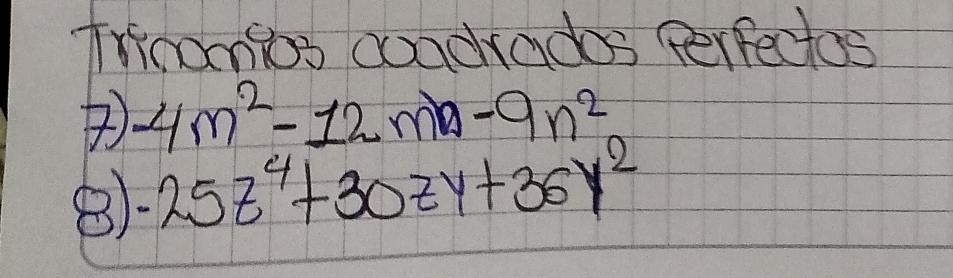 Trinomios cuadrados Perfectos
7)-4m² - 12mn - 9n²
8).25z⁴ + 30zy + 36y²